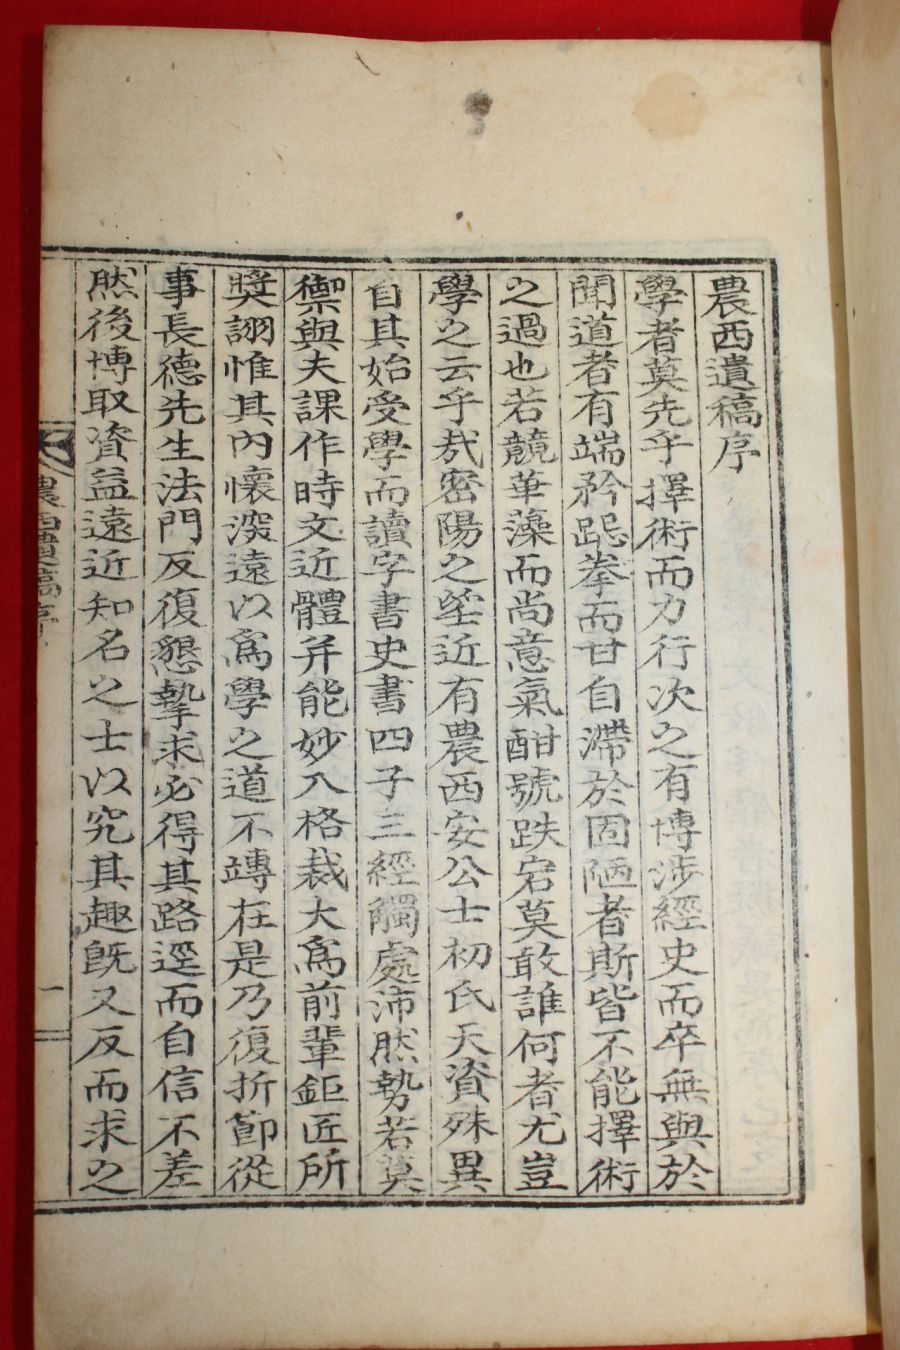 農西遺稿序
學者莫先乎擇術而力行次之有博涉經史而卒無與於
聞道者有端矜跽拳而甘自滯於固陋者斯皆不能擇術
之過也若競華藻而尚意氣酣號跌宕莫敢誰何者尤豈
學之云乎哉密陽之竾近有農西安公士初氏天資殊異
自其始受學而讀字書史書四子三經觸處沛然勢若莫
禦與夫課作時文近體并能妙入格裁大爲前輩鉅匠所
獎詡惟其內懷深遠以爲學之道不專在是乃復折節從
事長德先生法門反復懇摯求必得其路逕而自信不差
然後博取資益遠近知名之士以究其趣旣又反而求之
農西遺稿序
一